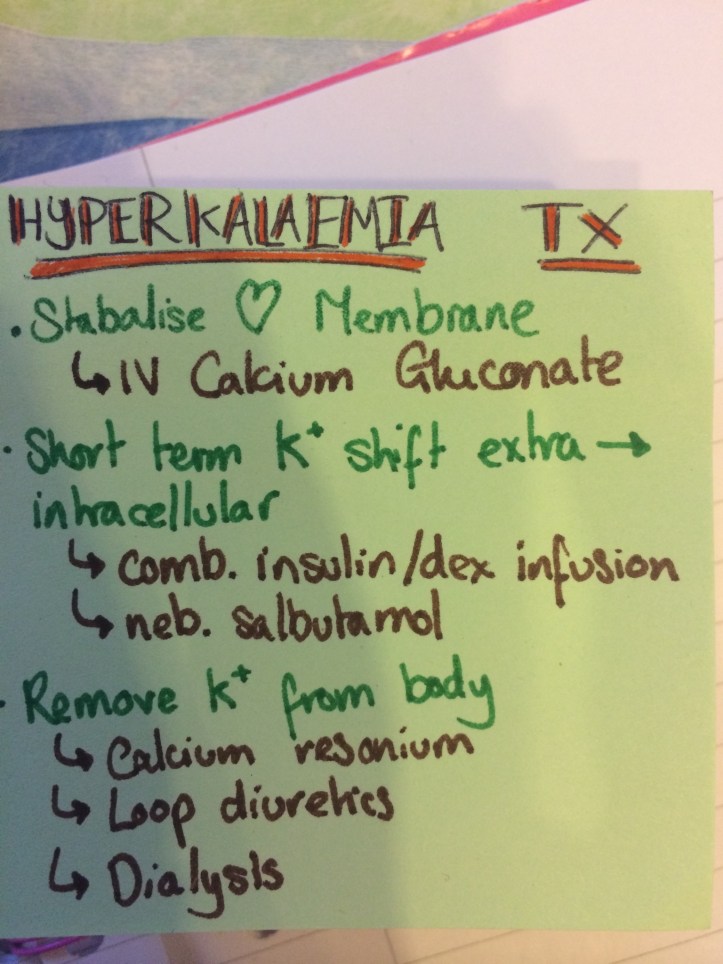 HYPERKALAEMIA TX
• Stabalise ♡ Membrane
↳ IV Calcium Gluconate
• Short term K⁺ shift extra →
intracellular
↳ comb. insulin/dex infusion
↳ neb. salbutamol
• Remove K⁺ from body
↳ Calcium resonium
↳ Loop diuretics
↳ Dialysis